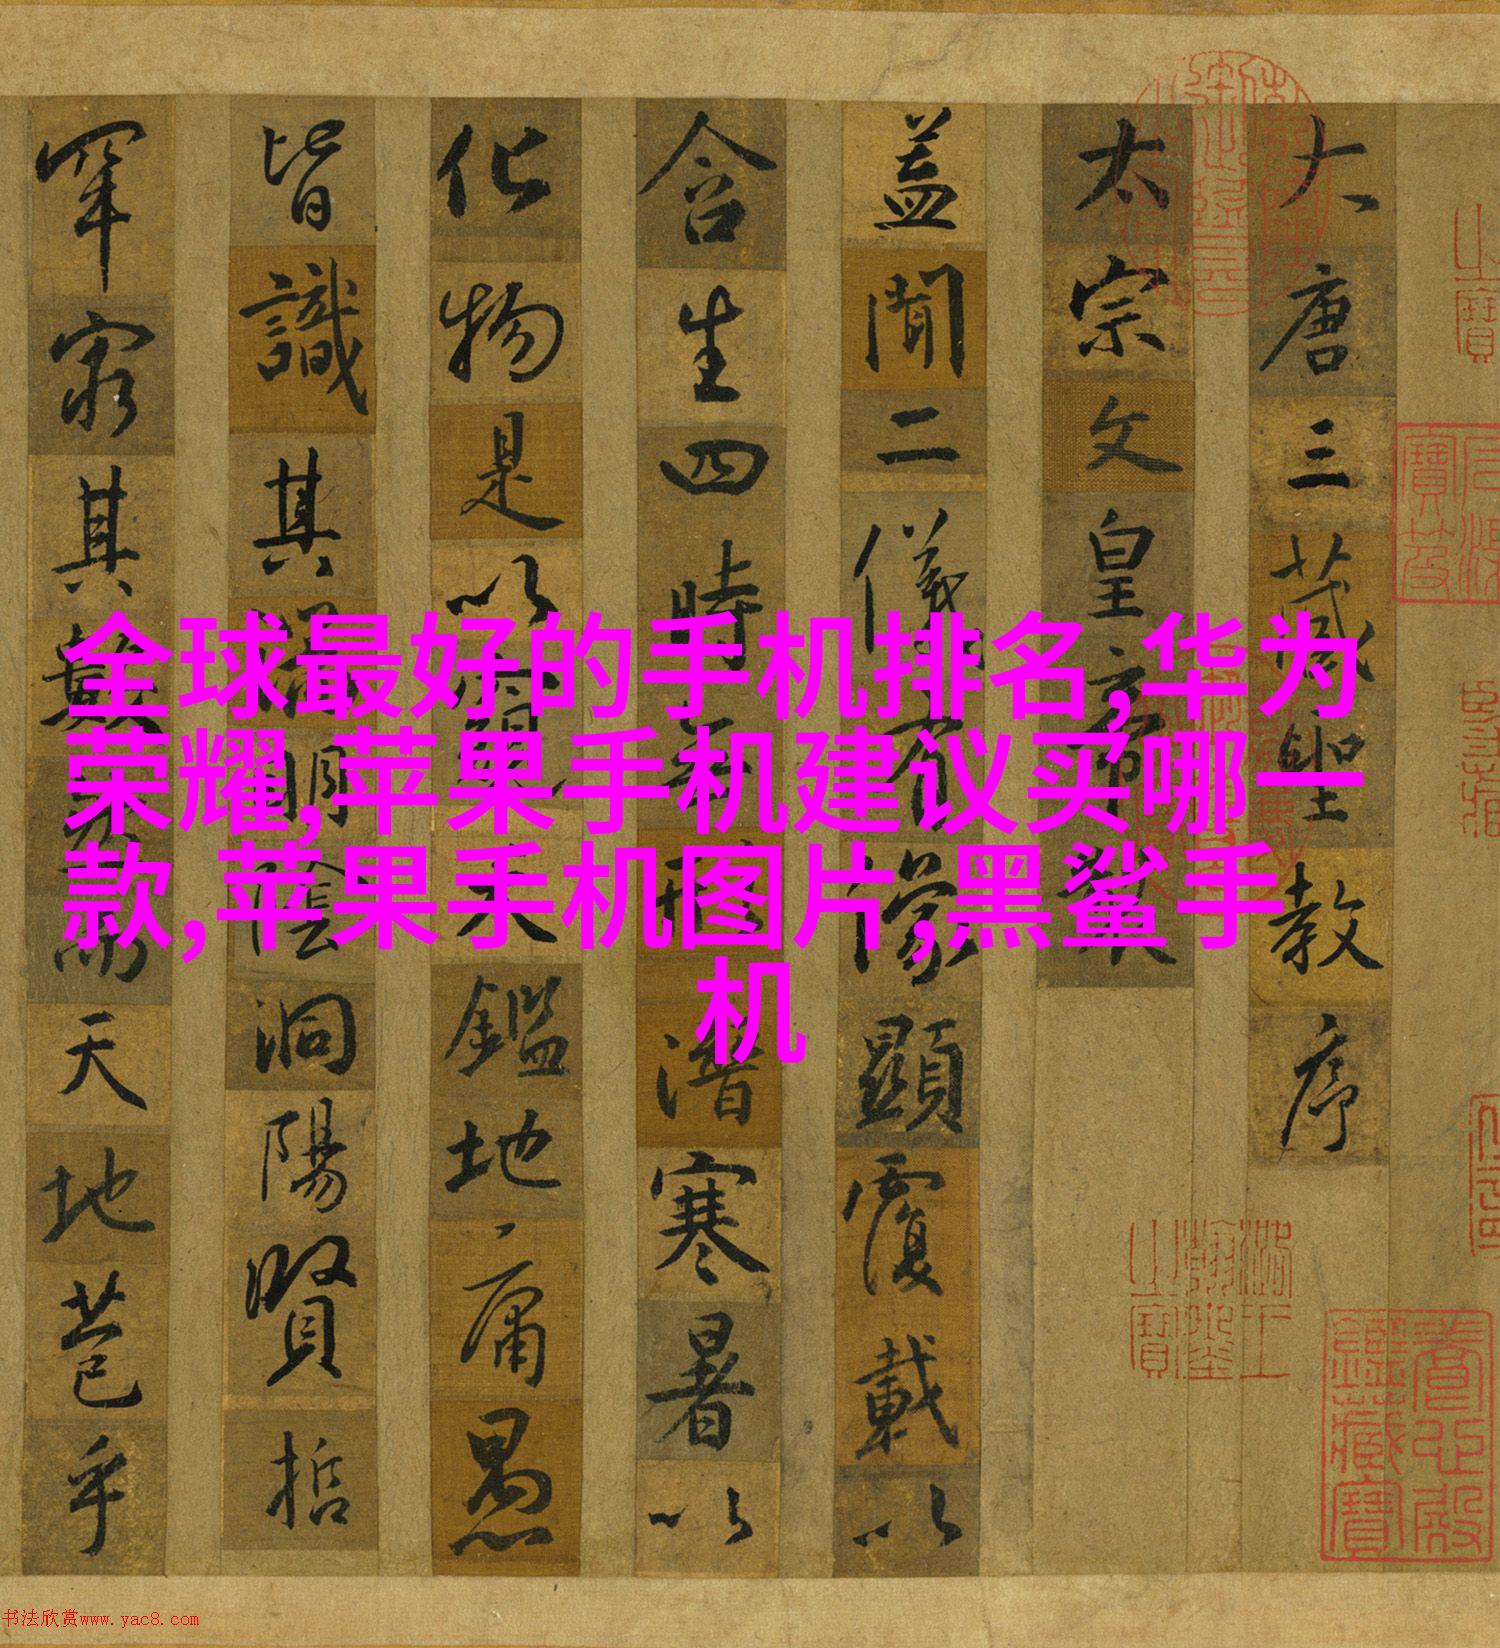 大唐三藏聖教序
太宗文皇帝製
蓋聞二儀有像顯覆載以
含生四時無形潛寒暑以
化物是以窺天鑑地庸愚
皆識其端明陰洞陽賢哲
罕窮其數然而天地苞乎
全球最好的手机排名,华为
荣耀,苹果手机建议买哪一
款,苹果手机图片,黑鲨手
机
书法欣赏www.yac8.com